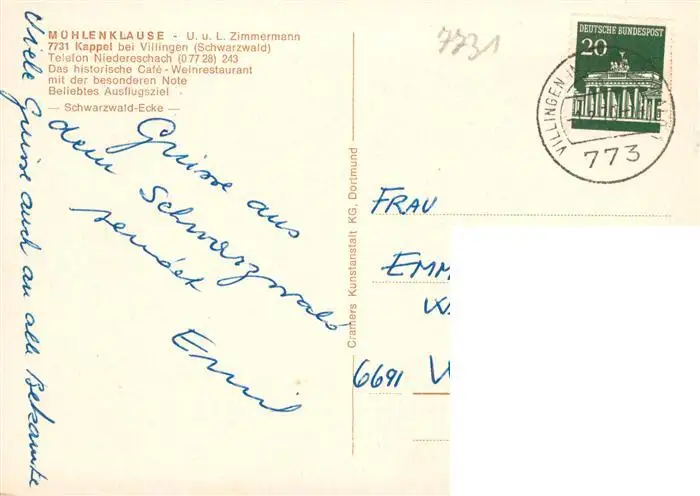 MÜHLENKLAUSE - U. u. L. Zimmermann
7731 Kappel bei Villingen (Schwarzwald)
Telefon Niedereschach (0 77 28) 243
Das historische Café - Weinrestaurant
mit der besonderen Note
Beliebtes Ausflugsziel
— Schwarzwald-Ecke —
Grüsse aus
dem Schwarzwald
sendet
Emil
Viele Grüsse auch an alle Bekannte
Cramers Kunstanstalt KG, Dortmund
7731
DEUTSCHE BUNDESPOST
20
VILLINGEN IM
773
FRAU
EMM
6691